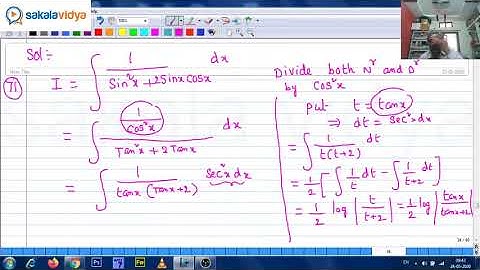 sakalavidya
Sol:-
II I = ∫ 1/(Sin²x+2Sinx Cosx) dx
= ∫ (1/Cos²x)/(Tan²x+2Tanx) dx
= ∫ 1/(tanx (Tanx+2)) Sec²x dx
Divide both Nʳ and Dʳ
by cos²x
put t = tanx
⇒ dt = sec²x dx
= ∫ 1/(t(t+2)) dt
= 1/2 [∫ 1/t dt - ∫ 1/(t+2) dt]
= 1/2 log |t/(t+2)| = 1/2 log |tanx/(tanx+2)|